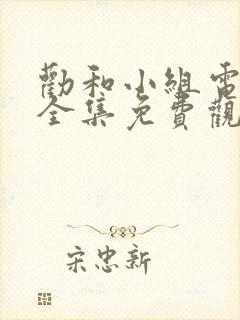 勸和小組電
全集免費觀
宋忠新